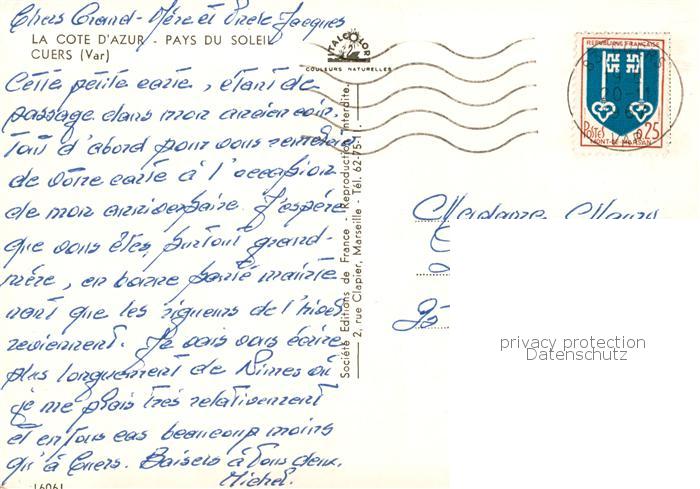 Chers Grand-Mère et Oncle Jacques
LA COTE D'AZUR - PAYS DU SOLEIL
CUERS (Var)
ITALCOLOR
COULEURS NATURELLES
Cette petite carte, étant de
passage dans mon ancien coin.
Tout d'abord pour vous remercier
de votre carte à l'occasion
de mon anniversaire. J'espère
que vous êtes, surtout grand-
mère, en bonne santé mainte
nant que les rigueurs de l'hiver
reviennent. Je vais vous écrire
plus longuement de Nimes où
je me plais très relativement
et en tous cas beaucoup moins
qu'à Cuers. Baisers à tous deux.
Michel.
16061
Société Editions de France - Reproduction Interdite
2, rue Clapier, Marseille - Tél. 62-75-11
REPUBLIQUE FRANÇAISE
Postes 0,25
MONT-DE-MARSAN
83 CUERS
VAR
Madame
privacy protection
Datenschutz